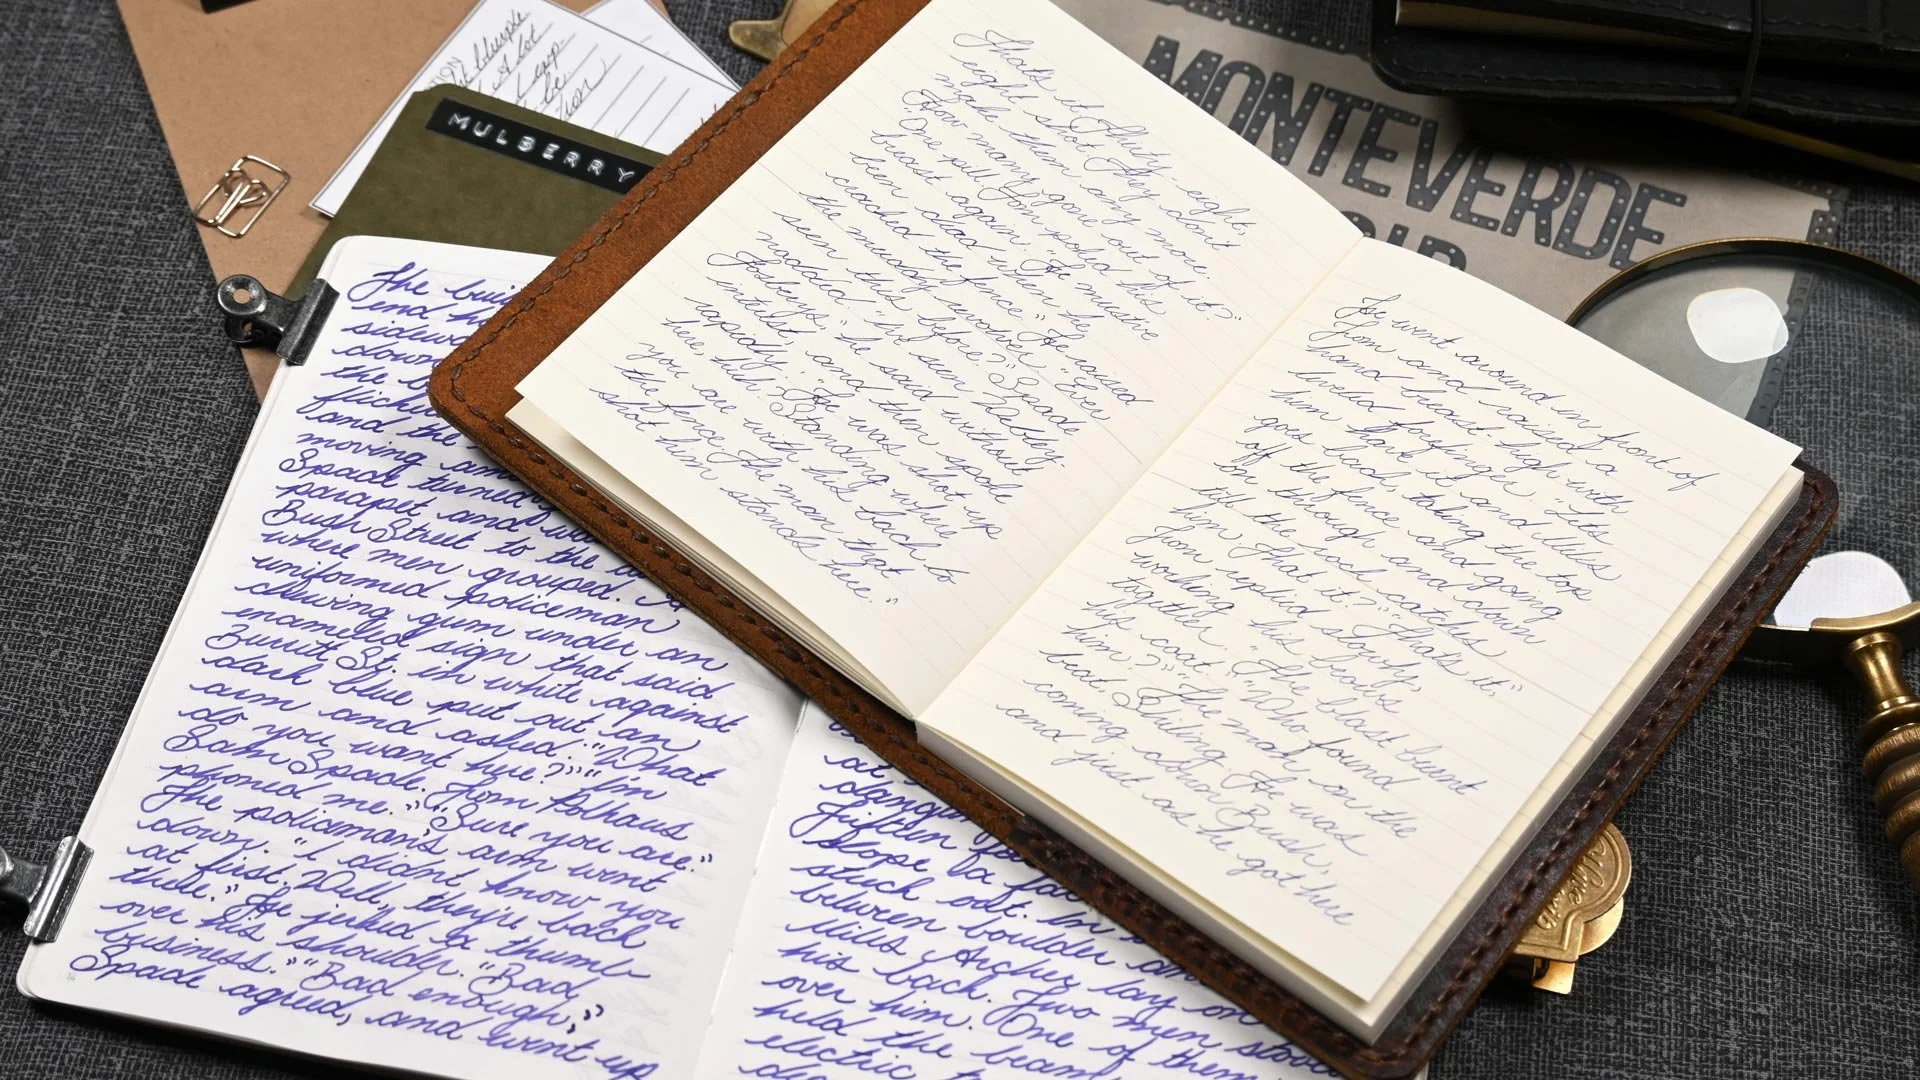 blurple
A lot
MULBERRY
MONTEVERDE
That's it. Thirty eight,
eight shot. They don't
make them any more.
How many gone out of it?"
One pill. Tom poked his
breast again. "He must've
been dead when he
cracked the fence." He raised
the muddy revolver. "Ever
seen this before?" Spade
nodded. "I've seen Webley-
Fosburys," he said without
interest, and then spoke
rapidly. "He was shot up
here, huh? Standing where
you are with his back to
the fence. The man that
shot him stands here."
He went around in front of
Tom and raised a
hand breast-high with
leveled forefinger. "Lets
him have it and Miles
goes back, taking the top
off the fence and going
on through and down
till the rock catches
him. That it?" "That's it,"
Tom replied slowly,
working his brows
together. "The blast burnt
his coat." "Who found
him?" "The man on the
beat, Shilling. He was
coming down Bush,
and just as he got here
The
end
down
the
and the
moving
Spade turned
parapet and
Bush Street to the
where men grouped. A
uniformed policeman
chewing gum under an
enameled sign that said
Burritt St. in white against
dark blue put out an
arm and asked: "What
do you want here?" "I'm
Sam Spade. Tom Polhaus
phoned me." "Sure you are."
The policeman's arm went
down. "I didn't know you
at first. Well, they're back
there." He jerked a thumb
over his shoulder. "Bad
business." "Bad enough,"
Spade agreed, and went up
Fifteen
slope
stuck out. In
between boulder and
Miles Archer lay on
his back. Two men stood
over him. One of them
held the beam
electric